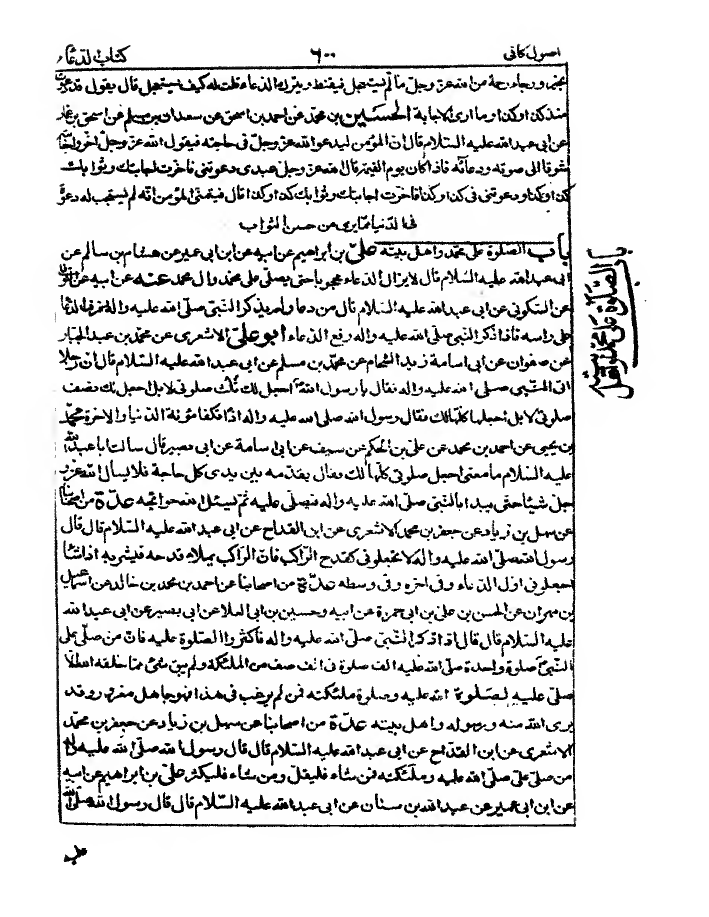 اصول كافى ٦٠٠ كتاب الدعاء
بخير ورجاء رحمة من الله عز وجل ما لم يستعجل فيقنط ويترك الدعاء قلت له كيف يستعجل قال يقول قد دعوت
منذ كذا وكذا وما ارى الاجابة الحسين بن محمد عن احمد بن اسحق عن سعدان بن مسلم عن اسحق بن عمار
عن ابى عبد الله عليه السلام قال ان المؤمن ليدعو الله عز وجل فى حاجته فيقول الله عز وجل اخروا اجابته
شوقا الى صوته ودعائه فاذا كان يوم القيمة قال الله عز وجل عبدى دعوتنى فاخرت اجابتك وثوابك
كذا وكذا ودعوتنى فى كذا وكذا فاخرت اجابتك وثوابك كذا وكذا قال فيتمنى المؤمن انه لم يستجب له دعوة
فى الدنيا مما يرى من حسن الثواب
باب الصلوة على محمد واهل بيته على بن ابراهيم عن ابيه عن ابن ابى عمير عن هشام بن سالم عن
ابى عبد الله عليه السلام قال لا يزال الدعاء محجوبا حتى يصلى على محمد وال محمد عنه عن ابيه عن النوفلى
عن السكونى عن ابى عبد الله عليه السلام قال من دعا ولم يذكر النبى صلى الله عليه واله رفرف الدعاء
على راسه فاذا ذكر النبى صلى الله عليه واله رفع الدعاء ابو على الاشعرى عن محمد بن عبد الجبار
عن صفوان عن ابى اسامة زيد الشحام عن محمد بن مسلم عن ابى عبد الله عليه السلام قال ان رجلا
اتى النبى صلى الله عليه واله فقال يا رسول الله اجعل لك ثلث صلوتى لا بل اجعل لك نصف
صلوتى لا بل اجعلها كلها لك فقال رسول الله صلى الله عليه واله اذا تكفا مؤنة الدنيا والاخرة محمد
بن يحيى عن احمد بن محمد عن على بن الحكم عن سيف عن ابى اسامة عن ابى بصير قال سالت ابا عبد الله
عليه السلام ما معنى اجعل صلوتى كلها لك فقال يقدمه بين يدى كل حاجة فلا يسال الله عز و
جل شيئا حتى يبدا بالنبى صلى الله عليه واله فيصلى عليه ثم يسئل الله حوائجه عدة من اصحابنا
عن سهل بن زياد عن جعفر بن محمد الاشعرى عن ابن القداح عن ابى عبد الله عليه السلام قال قال
رسول الله صلى الله عليه واله لا تجعلونى كقدح الراكب فان الراكب يملاء قدحه فيشربه اذا شاء
اجعلونى فى اول الدعاء وفى اخره وفى وسطه عدة من اصحابنا عن احمد بن محمد بن خالد عن اسمعيل
بن مهران عن الحسن بن على بن ابى حمزة عن ابيه وحسين بن ابى العلا عن ابى بصير عن ابى عبد الله
عليه السلام قال قال اذا ذكر النبى صلى الله عليه واله فاكثروا الصلوة عليه فان من صلى على
النبى صلوة واحدة صلى الله عليه الف صلوة فى الف صف من الملئكة ولم يبق شئ مما خلقه الله الا
صلى عليه لصلوة الله عليه وصلوة ملئكته فمن لم يرغب فى هذا فهو جاهل مغرور قد
برى الله منه ورسوله واهل بيته عدة من اصحابنا عن سهل بن زياد عن جعفر بن محمد
الاشعرى عن ابن القداح عن ابى عبد الله عليه السلام قال قال رسول الله صلى الله عليه واله
من صلى على صلى الله عليه وملئكته فمن شاء فليقل ومن شاء فليكثر على بن ابراهيم عن ابيه
عن ابن ابى عمير عن عبد الله بن سنان عن ابى عبد الله عليه السلام قال قال رسول الله صلى الله
باب الصلوة على محمد واهل بيته